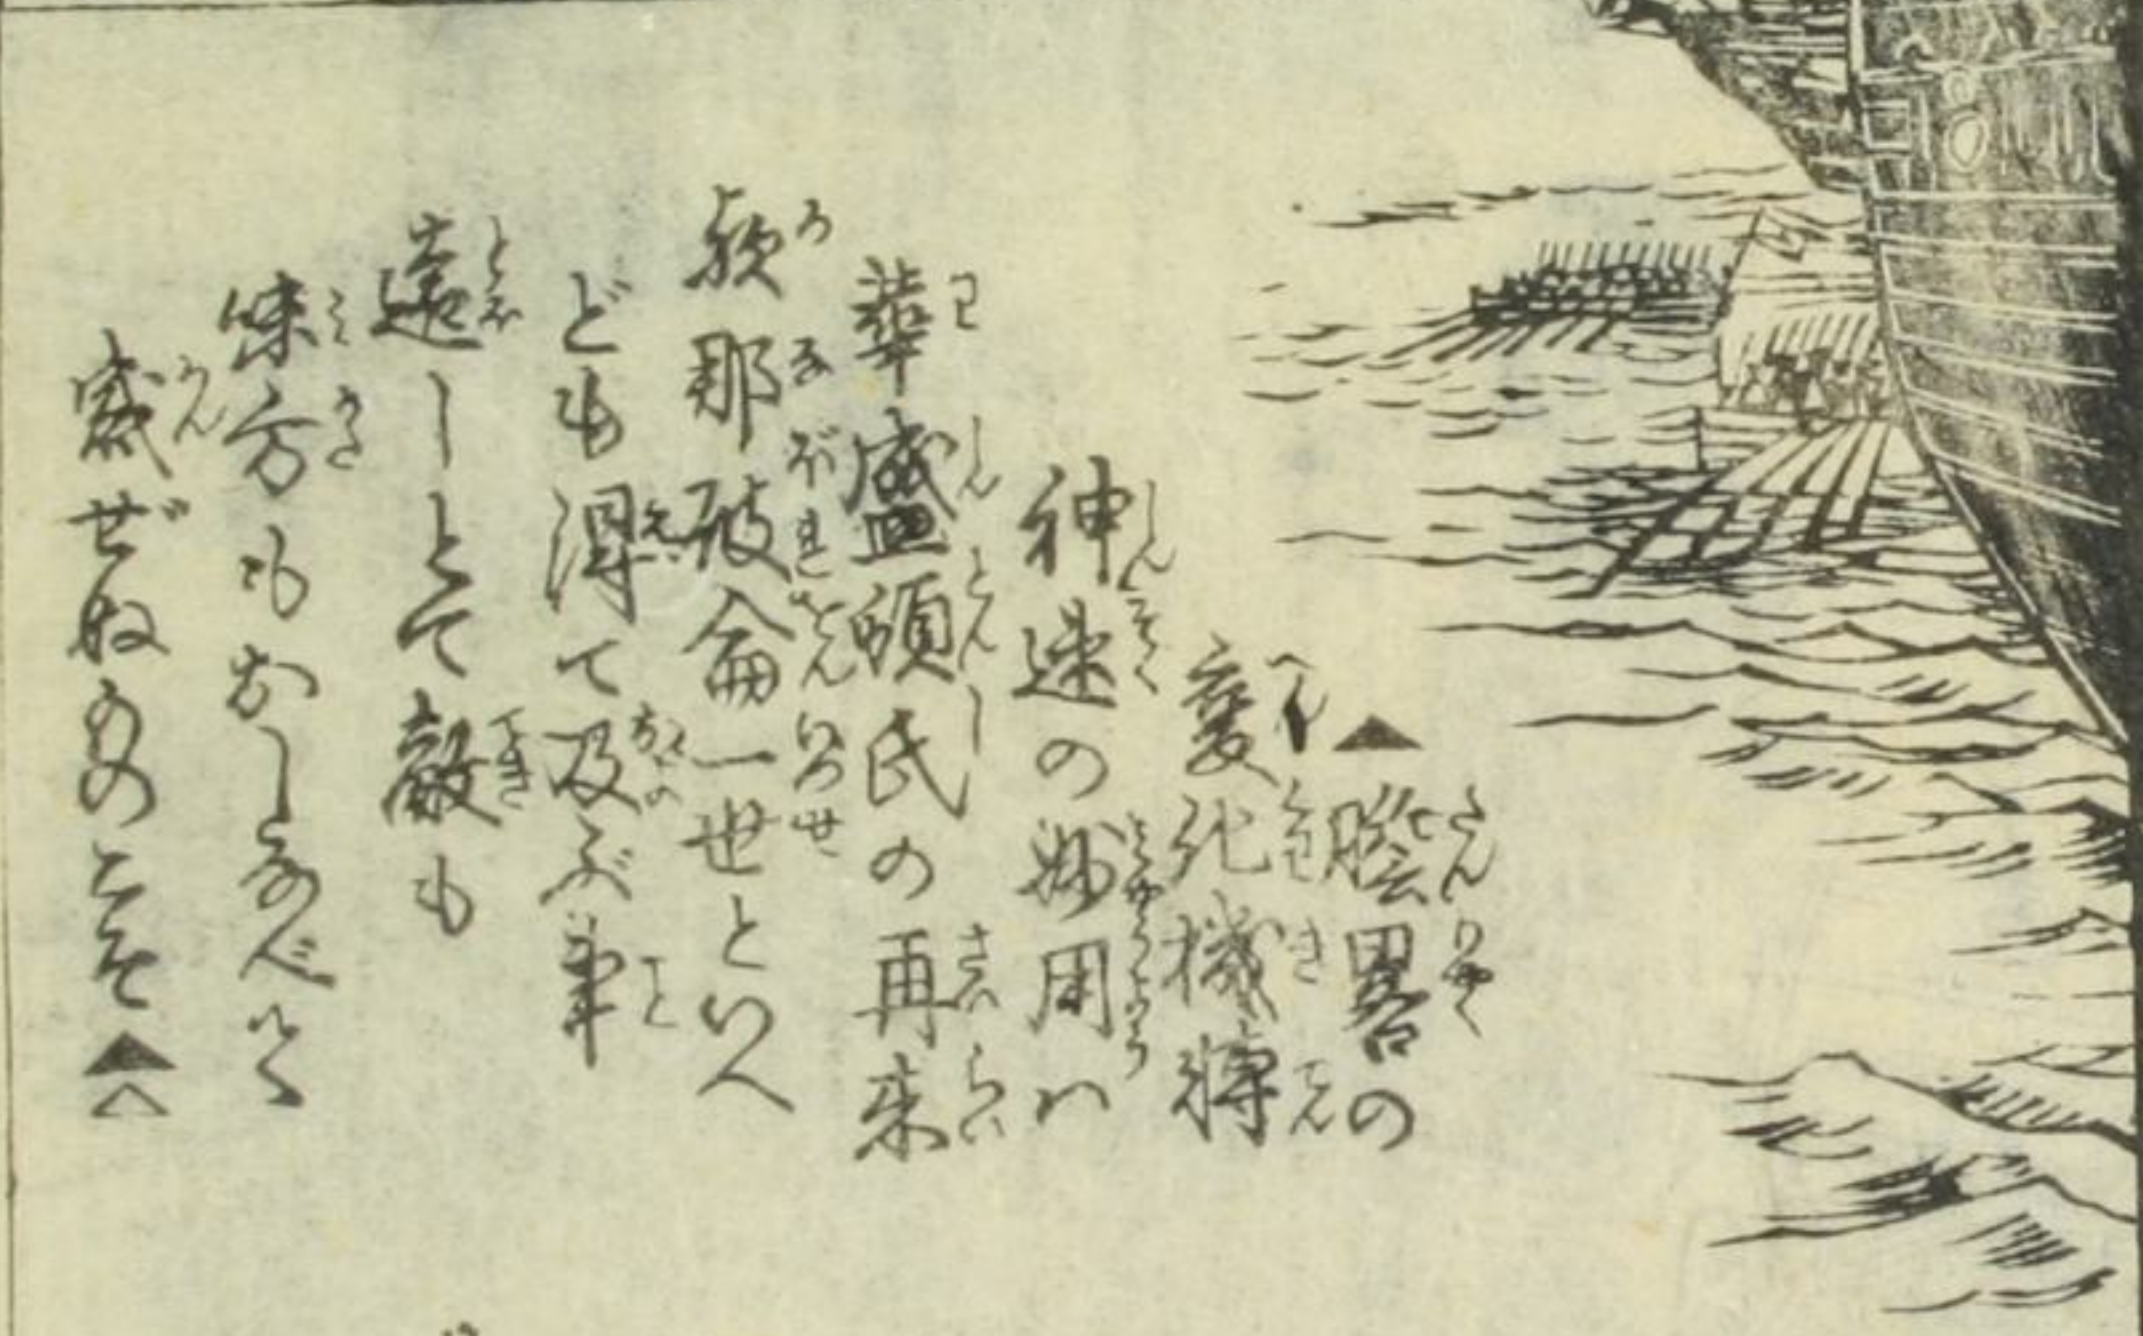 ▲膽畧の
變化機轉
神速の妙用ハ
華盛頓氏の再来
歟那破侖一世といへ
ども得て及ぶ事
遠しとて敵も
味方もおしなべて
感ぜぬものこそ▲へ